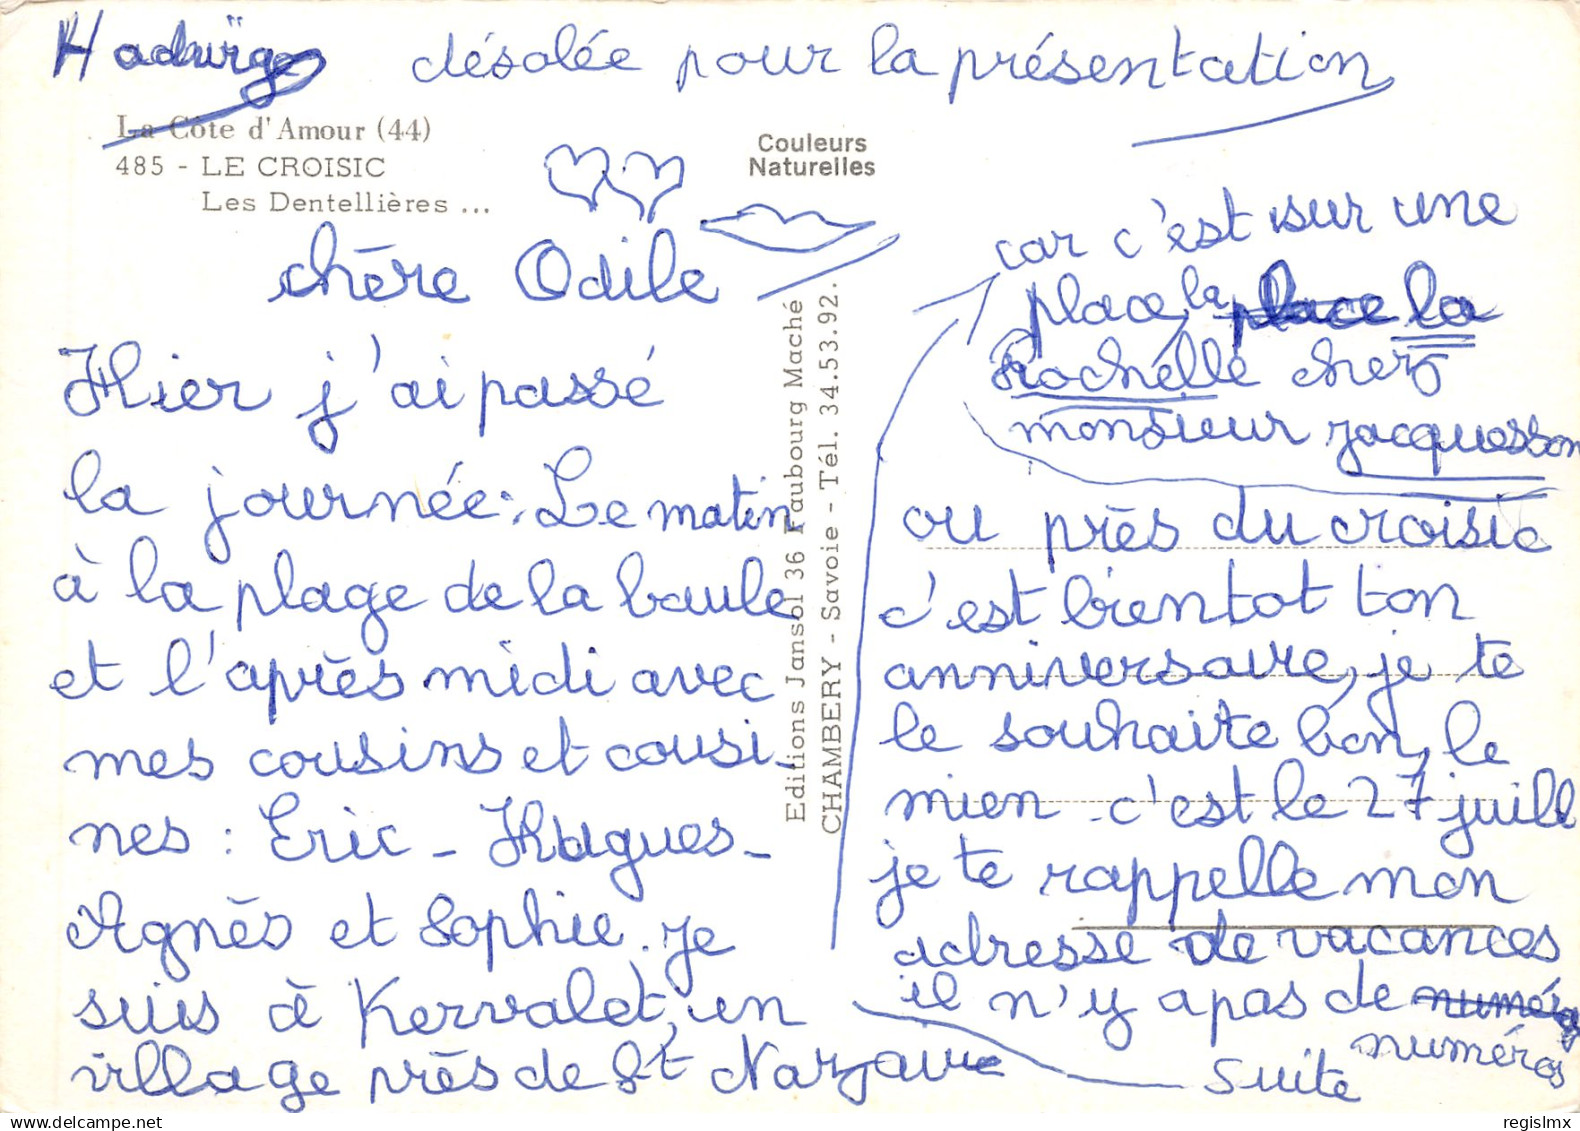 Hadwïge désolée pour la présentation
La Côte d'Amour (44)
485 - LE CROISIC
Les Dentellières ...
Couleurs
Naturelles
chère Odile
Hier j'ai passé
la journée: Le matin
à la plage de la baule
et l'après midi avec
mes cousins et cousi-
nes : Eric - Hugues -
Agnès et Sophie. Je
suis à Kervalet, un
village près de St Nazaire
Editions Jansol 36 Faubourg Maché
CHAMBERY - Savoie - Tél. 34.53.92.
ou près du croisic
c'est bientot ton
anniversaire, je te
le souhaite bon, le
mien c'est le 27 juill
je te rappelle mon
adresse de vacances
il n'y a pas de numéros
numéros
suite
car c'est sur une
place, la place la
Rochelle chez
monsieur jacquesson
regislmx